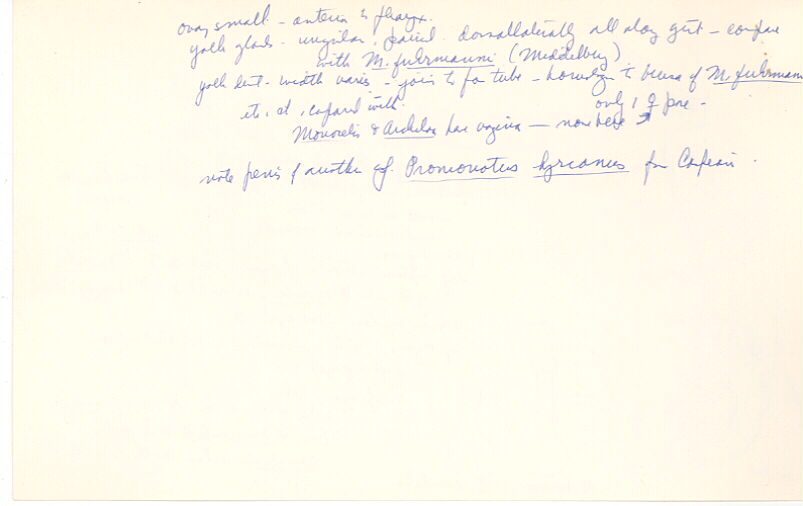 ovary small - anterior to pharynx.
yolk glands - irregular, paired dorsallaterally all along gut - compare
with M. fuhrmanni (Middelberg)
yolk duct - width varies - join to form tube - homolgn to bursa of M. fuhrmann
etc, cf, compared with only 1 ♀ pore -
Monocelis & Archiloa has vagina — none here
note penis of another sp. Promonotus hyrcanus for Caspian.